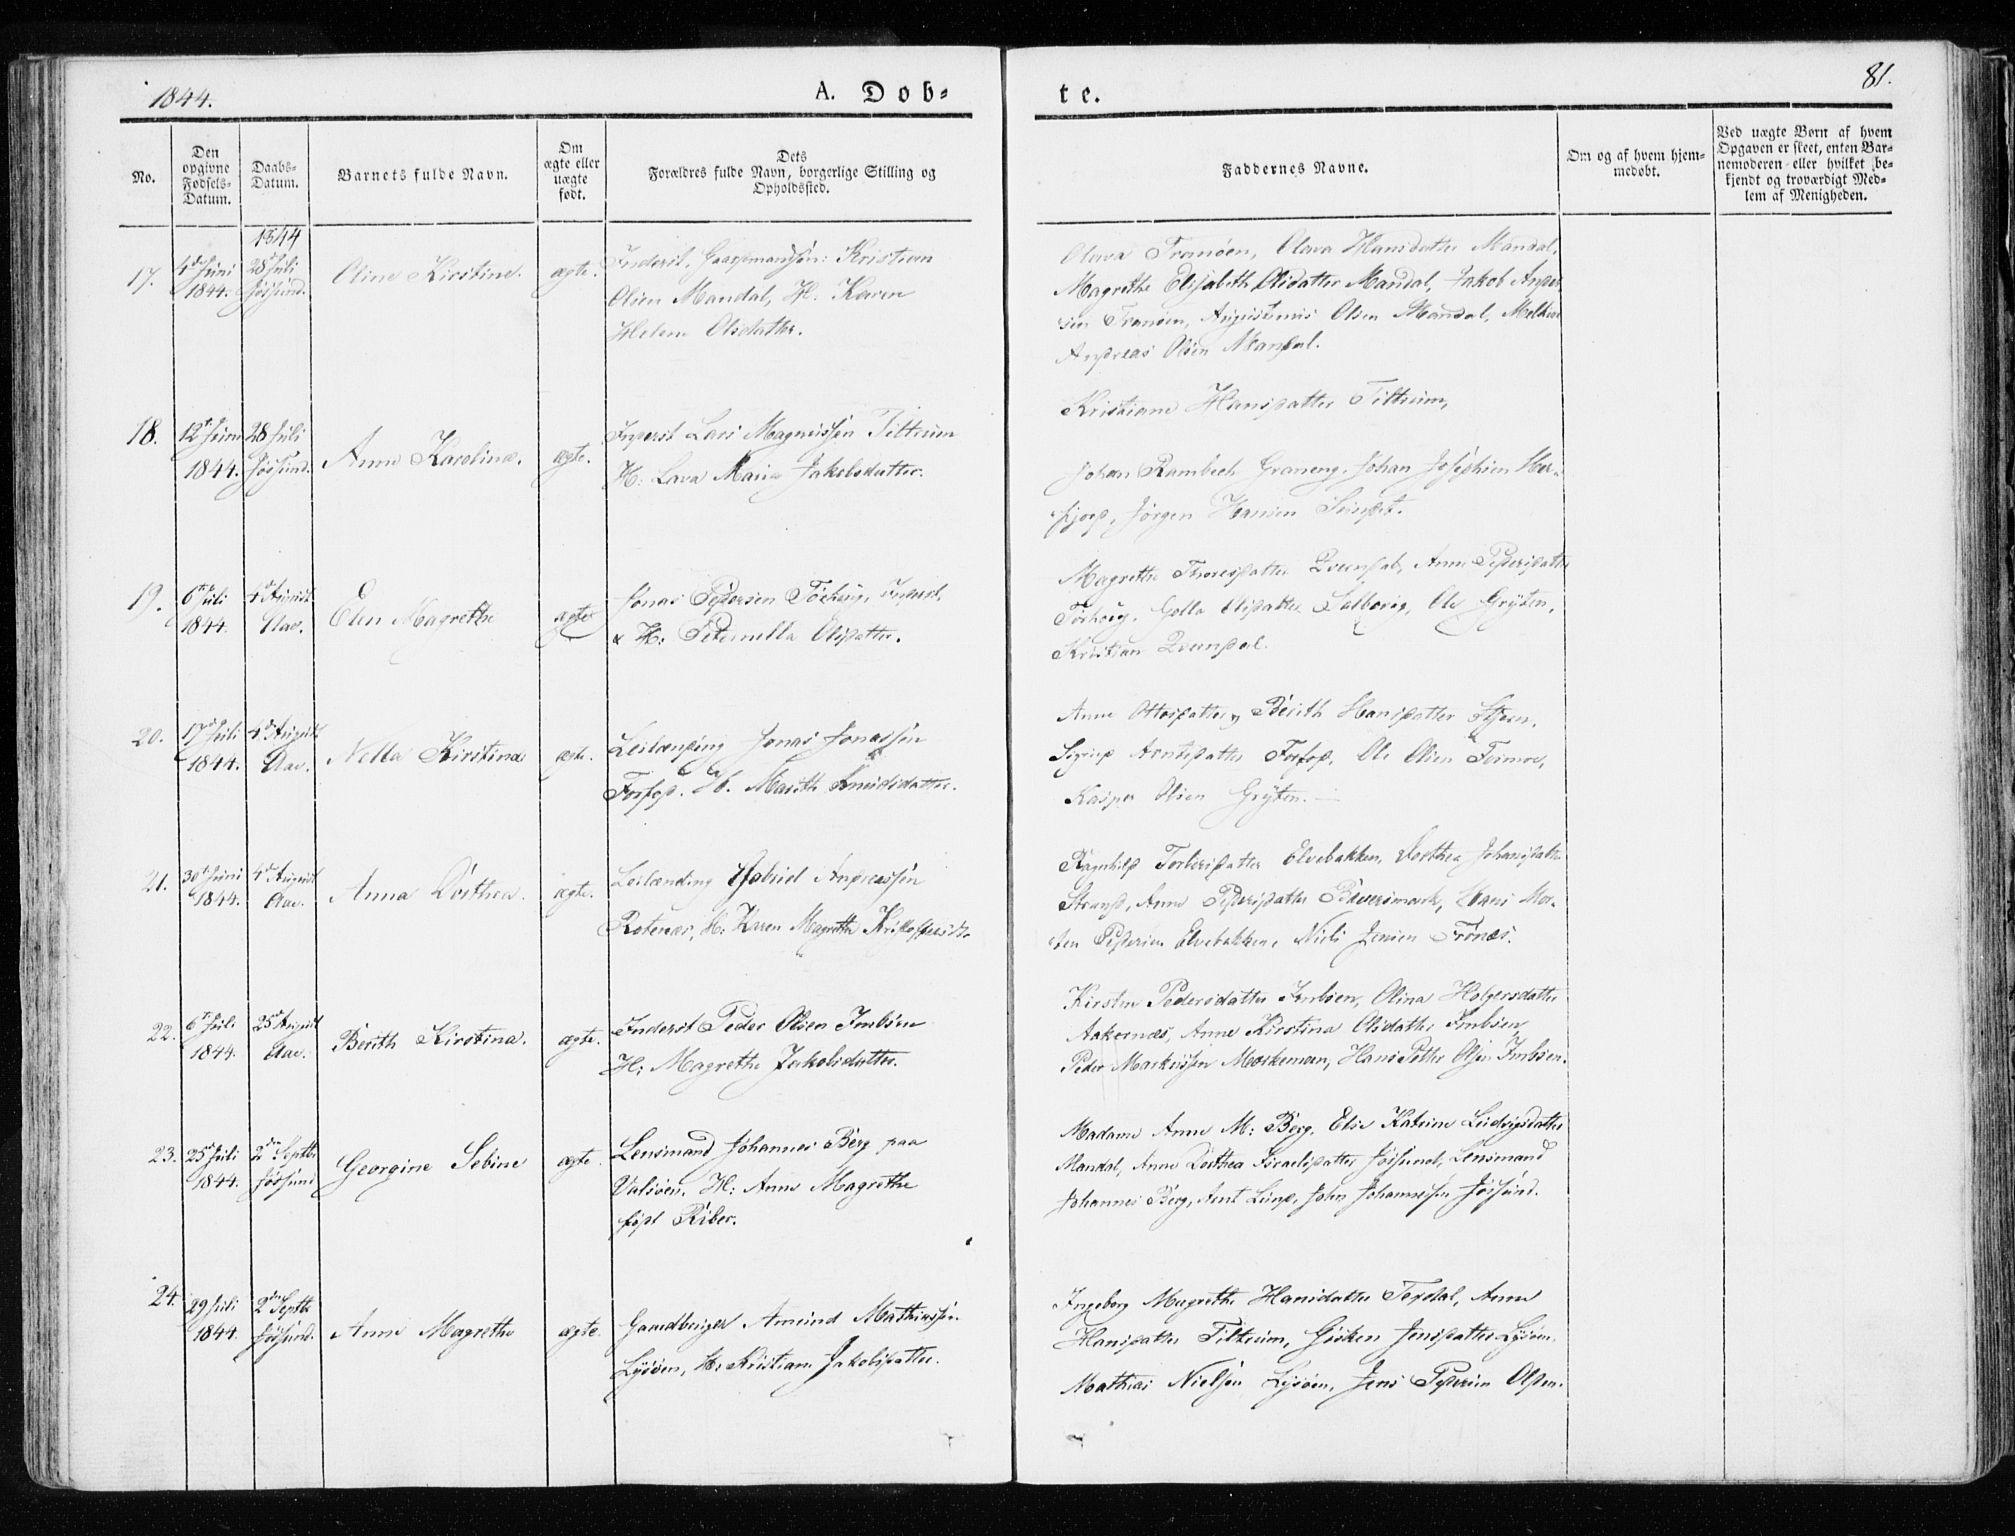 1844.
A. Døb-
te.
81.
No.
Den
opgivne
Fødsels-
Datum.
Daabs-
Datum.
Barnets fulde Navn.
Om
ægte eller
uægte
født.
Dets
Forældres fulde Navn, borgerlige Stilling og
Opholdssted.
Faddernes Navne.
Om og af hvem hjem-
medøbt.
Ved uægte Børn af hvem
Opgaven er skeet, enten Bar-
nemoderen eller hvilket be-
kjendt og troværdigt Med-
lem af Menigheden.
17.
4de Juni
1844.
1844
28 Juli
Jøssund.
Oline Kirstine.
ægte.
Inderst, Kristian
Olsen Mandal, H. Karen
Helene Olsdatter.
Olava Tranøen, Olava Hansdatter Mandal,
Magrethe Elisabeth Olsdatter Mandal, Jakob Ander
sen Tranøen, Olsen Mandal, Melkior
Andreas Olsen Mandal.
18.
12te Juni
1844.
28 Juli
Jøssund.
Anne Karolina.
ægte.
Inderst Lars Magnussen Tiltrum
H: Lava Maria Jakobsdatter.
Kristiane Hansdatter Tiltrum,
Johan Rambech Graneng, Johan Josephsen Har-
fjord, Jørgen Hansen
19.
6te Juli
1844.
4de August
Aae.
Elen Magrethe
ægte
Jonas Pedersen Inderst,
& H: Peternella Olsdatter.
Magrethe Thoresdatter Qvendal, Anne Pedersdatter
Olsdatter Ole Grÿten,
Kristian Qvendal.
20.
17de Juli
1844.
4de August
Aae.
Nella Kirstina
ægte.
Leilænding Jonas Jonassen
Forfod. H. Marith Knudsdatter.
Anne Ottosdatter, Berith Hansdatter
Sigrid Arntsdatter Forfod, Ole Olsen
Kasper Olsen Grÿten.
21.
30te Juni
1844.
4de August
Aae.
Anna Dorthea.
ægte.
Leilænding Gabriel Andreassen
Rotenæs, H: Karen Magrethe
Ragnhild Torbersdatter Elvebakken, Dorthea Johansdatter
Strand, Anne Pedersdatter Bæversmark, Hans Mor-
ten Pedersen Elvebakken, Niels Jensen Frønes.
22.
6te Juli
1844.
25de August
Aae.
Berith Kirstina.
ægte.
Inderst Peder Olsen Imbsen
H: Magrethe Jakobsdatter.
Kirsten Pedersdatter Imbsen, Olina Holgersdatter
Aakernæs, Anne Kirstina Olsdatter Imbsen,
Peder Markussen Morkemoen, Hans Petter Olsen Imbsen.
23.
25de Juli
1844.
2den Septbr
Jøssund
Georgine Sebine
ægte.
Lensmand Johannes Berg paa
Valsøen, H: Anne Magrethe
født Riber.
Madame Anne M: Berg, Elie Katrine Ludvigsdatter
Mandal, Anne Dorthea Israelsdatter Jøssund, Lensmand
Johannes Berg, Arnt Lund, John Johannessen Jøssund.
24.
29 Juli
1844.
2den Septbr
Jøssund.
Anne Magrethe
ægte.
Gaardbruger Amund Mathiassen
Lysøen, H: Kristiane Jakobsdatter.
Ingeborg Magrethe Hansdatter Teksdal, Anne
Hansdatter Tiltrum, Gisken Jensdatter Lysøen,
Mathias Nielsen Lysøen, Jens Pedersen Olden.